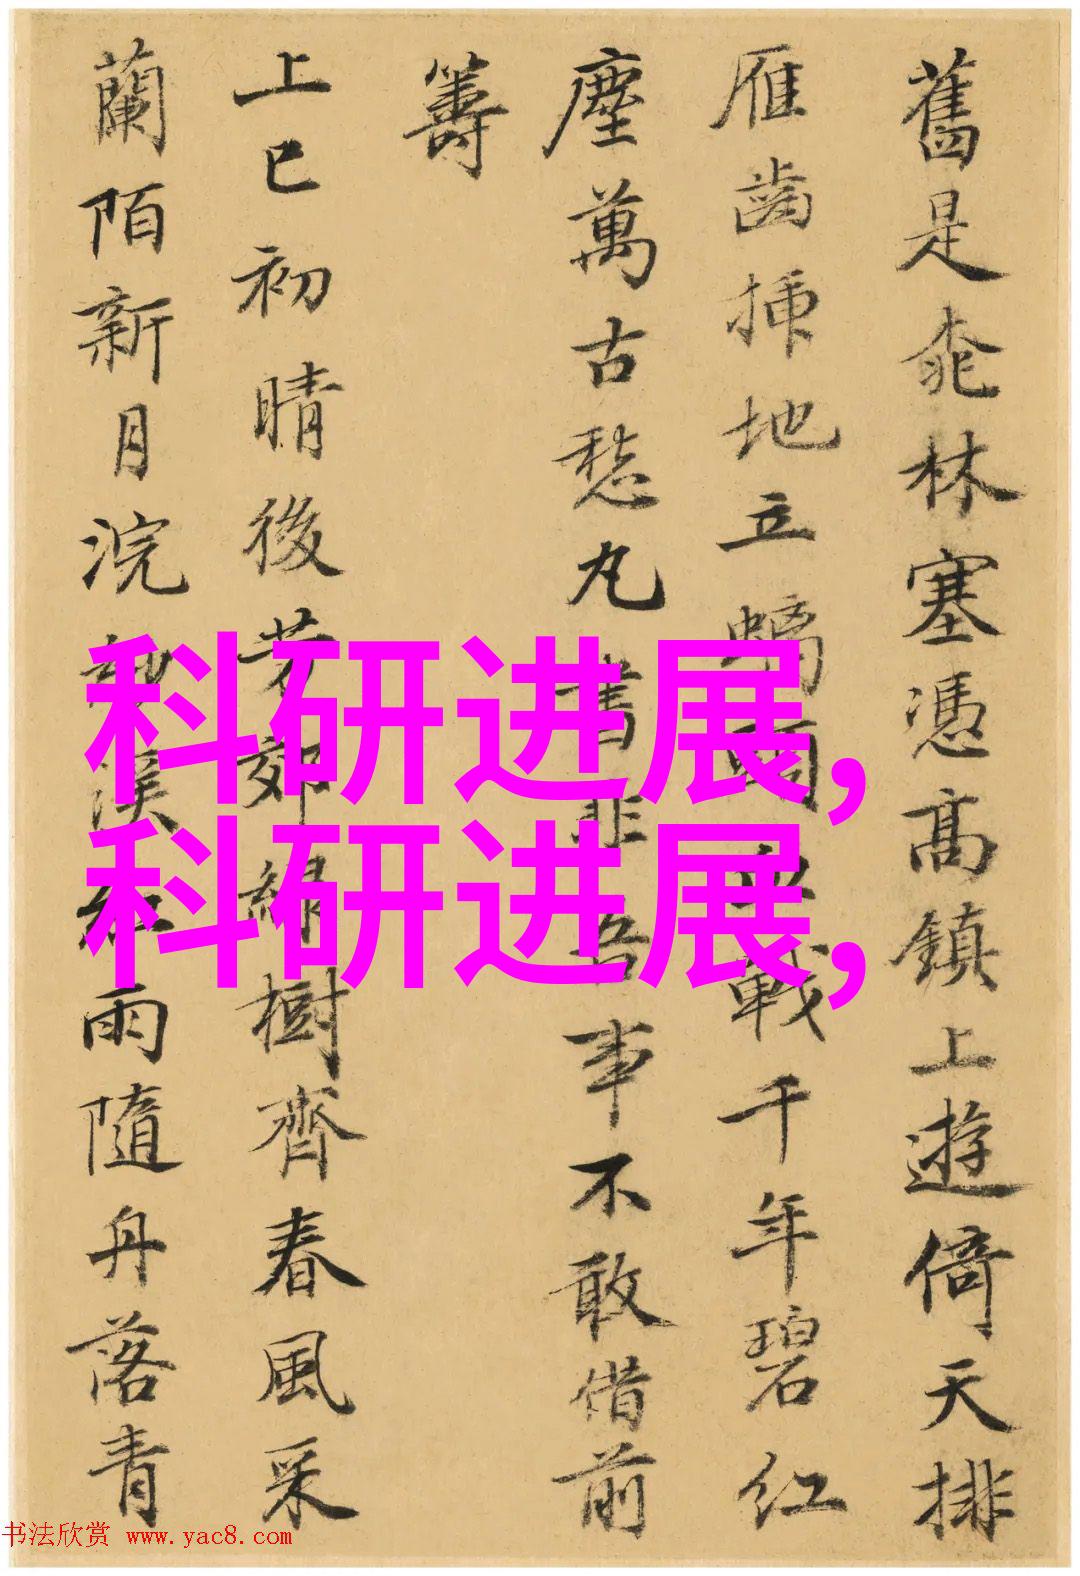 舊是桃林塞憑高鎮上遊倚天排
雁齒插地立螭頭血戰千年碧紅
塵萬古愁丸書非吾事不敢借前
籌
上巳初晴後芳郊綠樹齊春風采
蘭陌新月浣紗溪紅雨隨舟落青
科研进展,
科研进展,
书法欣赏 www.yac8.com